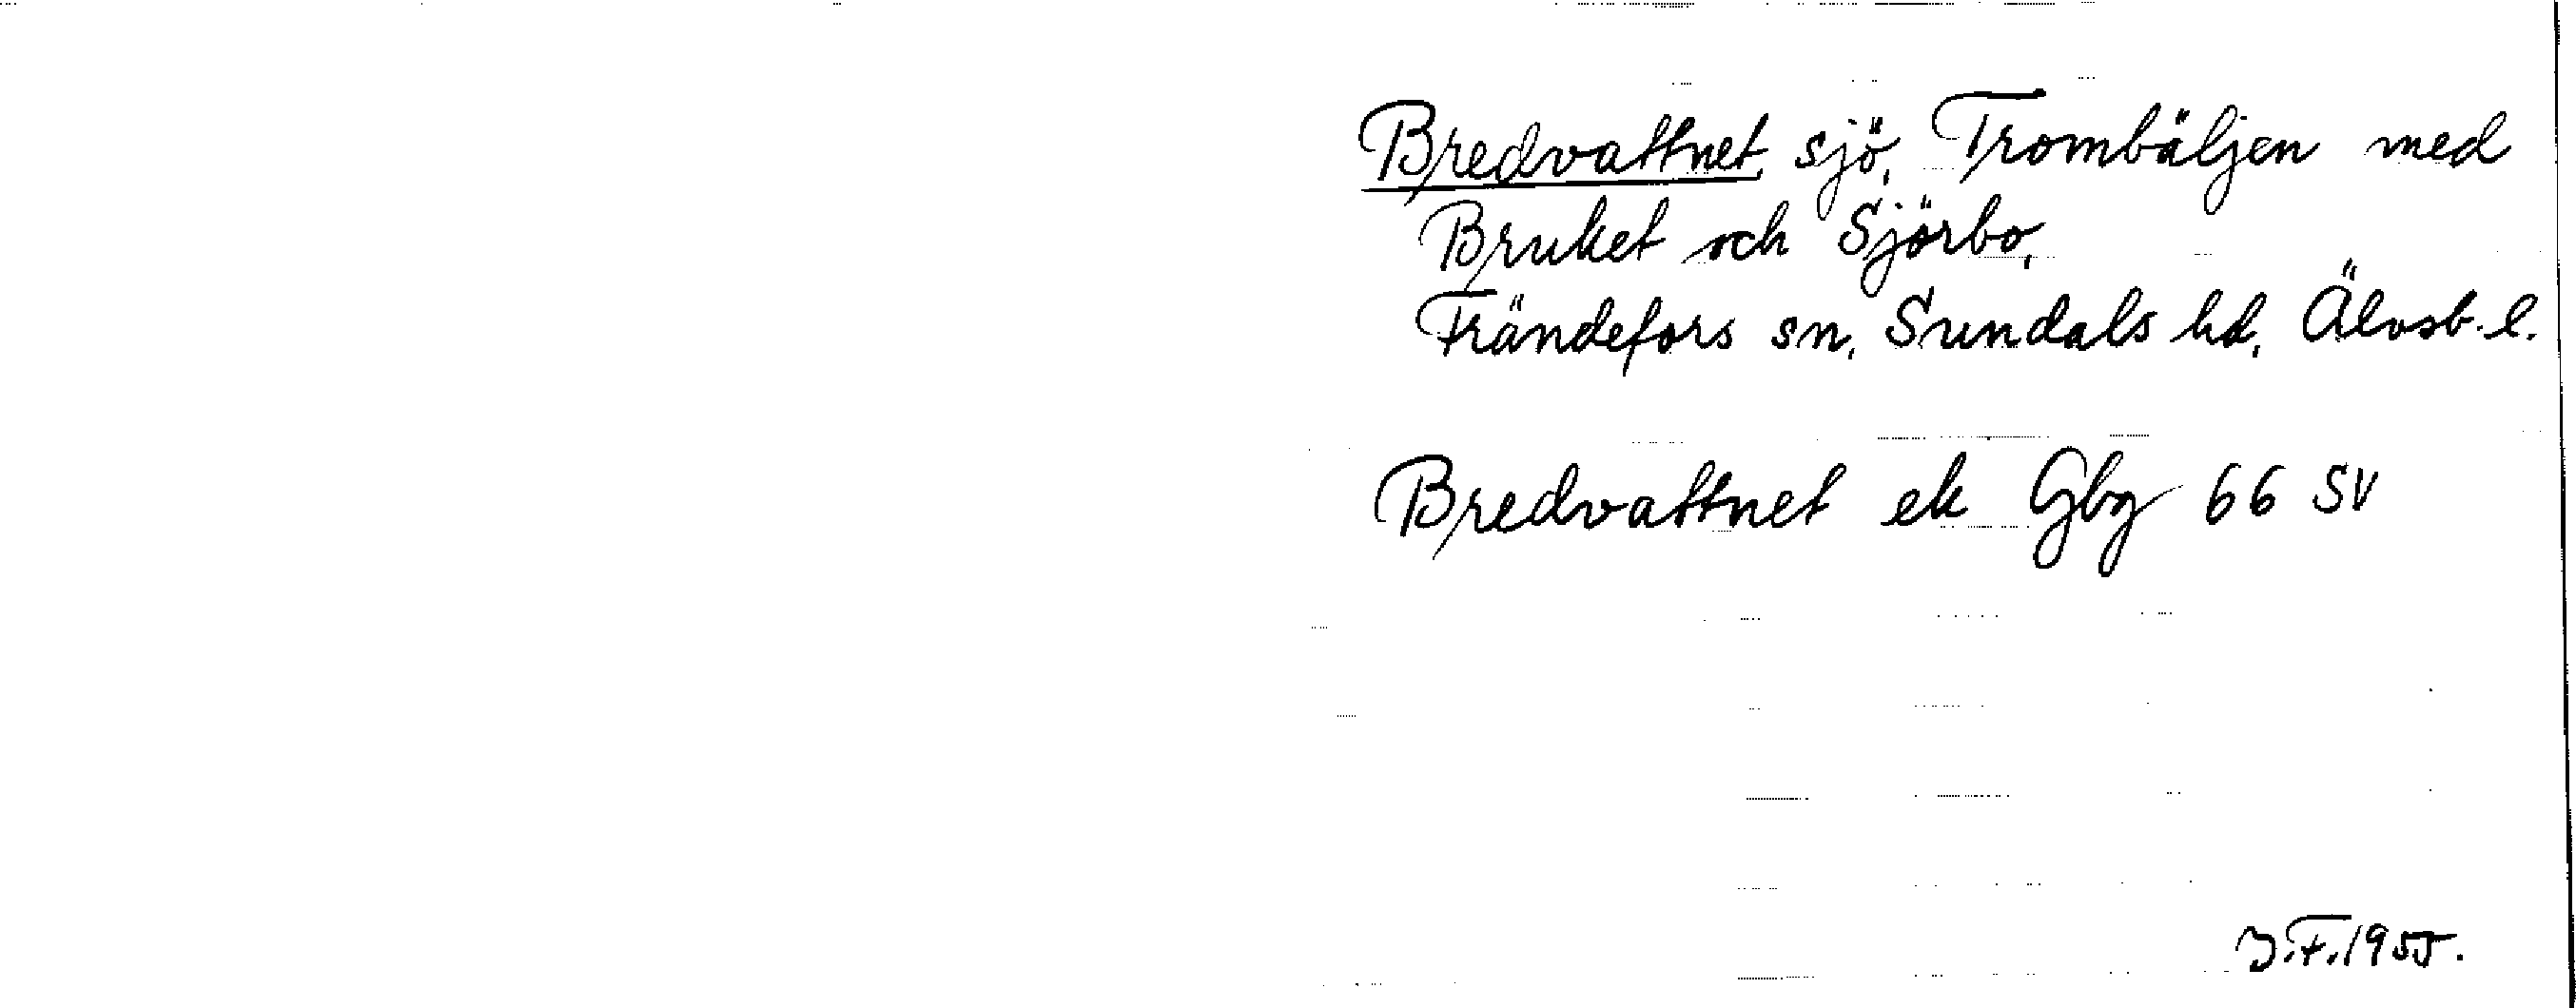 Bredvattnet, sjö, Trombäljen med
Bruket och Sjörbo,
Frändefors sn, Sundals hd, Älvsb. l.
Bredvattnet ek Gbg 66 SV
J.F. 1955.